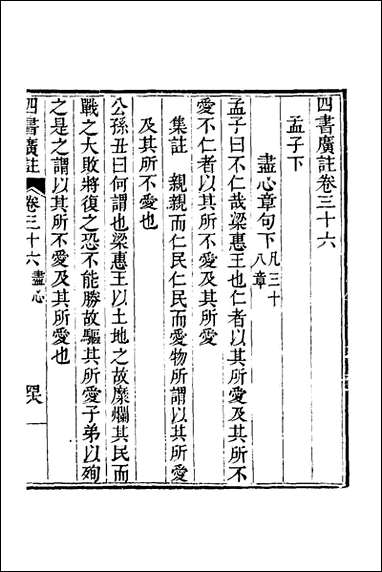 四書廣註卷三十六
孟子下
盡心章句下凡三十八章
孟子曰不仁哉梁惠王也仁者以其所愛及其所不
愛不仁者以其所不愛及其所愛
集註親親而仁民仁民而愛物所謂以其所愛
及其所不愛也
公孫丑曰何謂也梁惠王以土地之故糜爛其民而
戰之大敗將復之恐不能勝故驅其所愛子弟以殉
之是之謂以其所不愛及其所愛也
四書廣註 卷三十六 盡心 一